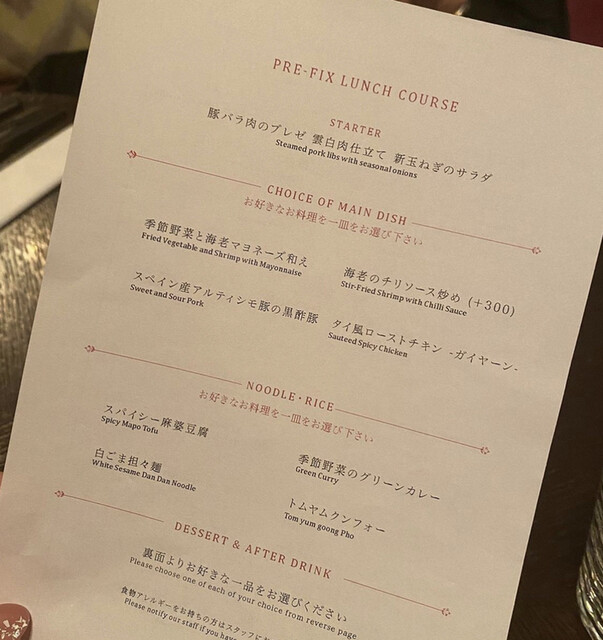 PRE-FIX LUNCH COURSE
STARTER
豚バラ肉のブレゼ 雲白肉仕立て 新玉ねぎのサラダ
Steamed pork libs with seasonal onions
CHOICE OF MAIN DISH
お好きなお料理を一皿をお選び下さい
季節野菜と海老マヨネーズ和え
Fried Vegetable and Shrimp with Mayonnaise
海老のチリソース炒め (+300)
Stir-Fried Shrimp with Chilli Sauce
スペイン産アルティシモ豚の黒酢豚
Sweet and Sour Pork
タイ風ローストチキン -ガイヤーン-
Sauteed Spicy Chicken
NOODLE・RICE
お好きなお料理を一皿をお選び下さい
スパイシー麻婆豆腐
Spicy Mapo Tofu
季節野菜のグリーンカレー
Green Curry
白ごま担々麺
White Sesame Dan Dan Noodle
トムヤムクンフォー
Tom yum goong Pho
DESSERT & AFTER DRINK
裏面よりお好きな一品をお選びください
Please choose one of each of your choice from reverse page
食物アレルギーをお持ちの方はスタッフに
Please notify our staff if you have